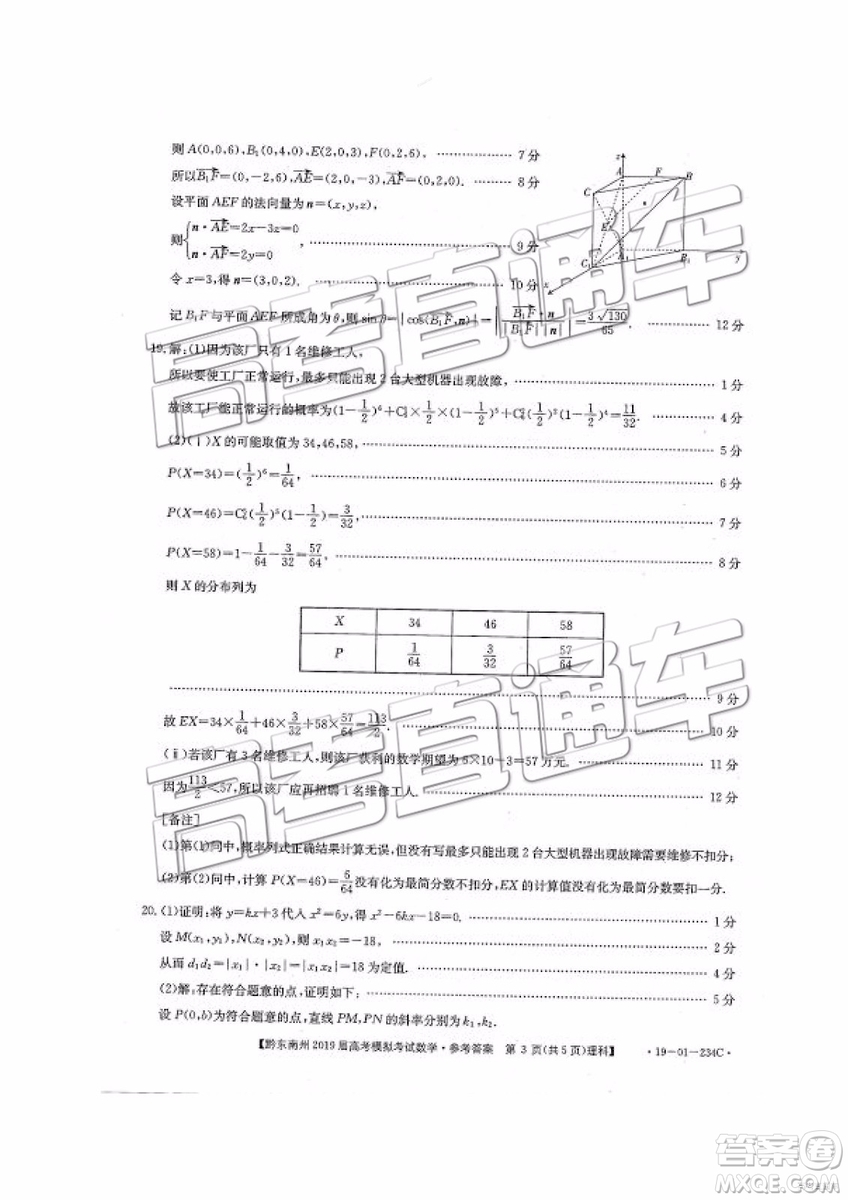 则 A(0,0,6),B₁(0,4,0),E(2,0,3),F(0,2,6), ………… 7 分
所以B₁F=(0,-2,6),AE=(2,0,-3),AF=(0,2,0). ………… 8 分
设平面 AEF 的法向量为 n=(x,y,z),
则{n·AE=2x-3z=0
n·AF=2y=0 , ………… 9 分
令 x=3,得 n=(3,0,2). ………… 10 分
记 B₁F 与平面 AEF 所成角为 θ,则 sin θ=|cos⟨B₁F,n⟩|=|B₁F·n/|B₁F||n||=3√130/65. ………… 12 分
19.解:(1)因为该厂只有 1 名维修工人,
所以要使工厂正常运行,最多只能出现 2 台大型机器出现故障, ………… 1 分
故该工厂能正常运行的概率为(1-1/2)⁶+C₆¹×1/2×(1-1/2)⁵+C₆²(1/2)²(1-1/2)⁴=11/32. ………… 4 分
(2)(ⅰ)X 的可能取值为 34,46,58, ………… 5 分
P(X=34)=(1/2)⁶=1/64, ………… 6 分
P(X=46)=C₆⁵(1/2)⁵(1-1/2)=3/32, ………… 7 分
P(X=58)=1-1/64-3/32=57/64, ………… 8 分
则 X 的分布列为
X 34 46 58
P 1/64 3/32 57/64
………… 9 分
故 EX=34×1/64+46×3/32+58×57/64=113/2. ………… 10 分
(ⅱ)若该厂有 3 名维修工人,则该厂获利的数学期望为 6×10-3=57 万元. ………… 11 分
因为113/2<57,所以该厂应再招聘 1 名维修工人. ………… 12 分
[备注]
(1)第(1)问中,概率列式正确结果计算无误,但没有写最多只能出现 2 台大型机器出现故障需要维修不扣分;
(2)第(2)问中,计算 P(X=46)=6/64没有化为最简分数不扣分,EX 的计算值没有化为最简分数要扣一分.
20.(1)证明:将 y=kx+3 代入 x²=6y,得 x²-6kx-18=0. ………… 1 分
设 M(x₁,y₁),N(x₂,y₂),则 x₁x₂=-18, ………… 2 分
从而 d₁d₂=|x₁|·|x₂|=|x₁x₂|=18 为定值. ………… 4 分
(2)解:存在符合题意的点,证明如下: ………… 5 分
设 P(0,b)为符合题意的点,直线 PM,PN 的斜率分别为 k₁,k₂.
【黔东南州 2019 届高考模拟考试数学·参考答案 第 3 页(共 5 页)理科】 ·19-01-234C·
z
A
F
B
C
E
C₁
A₁
B₁
x
y
高考直通车
高考直通车
答案圈
MXQE.COM